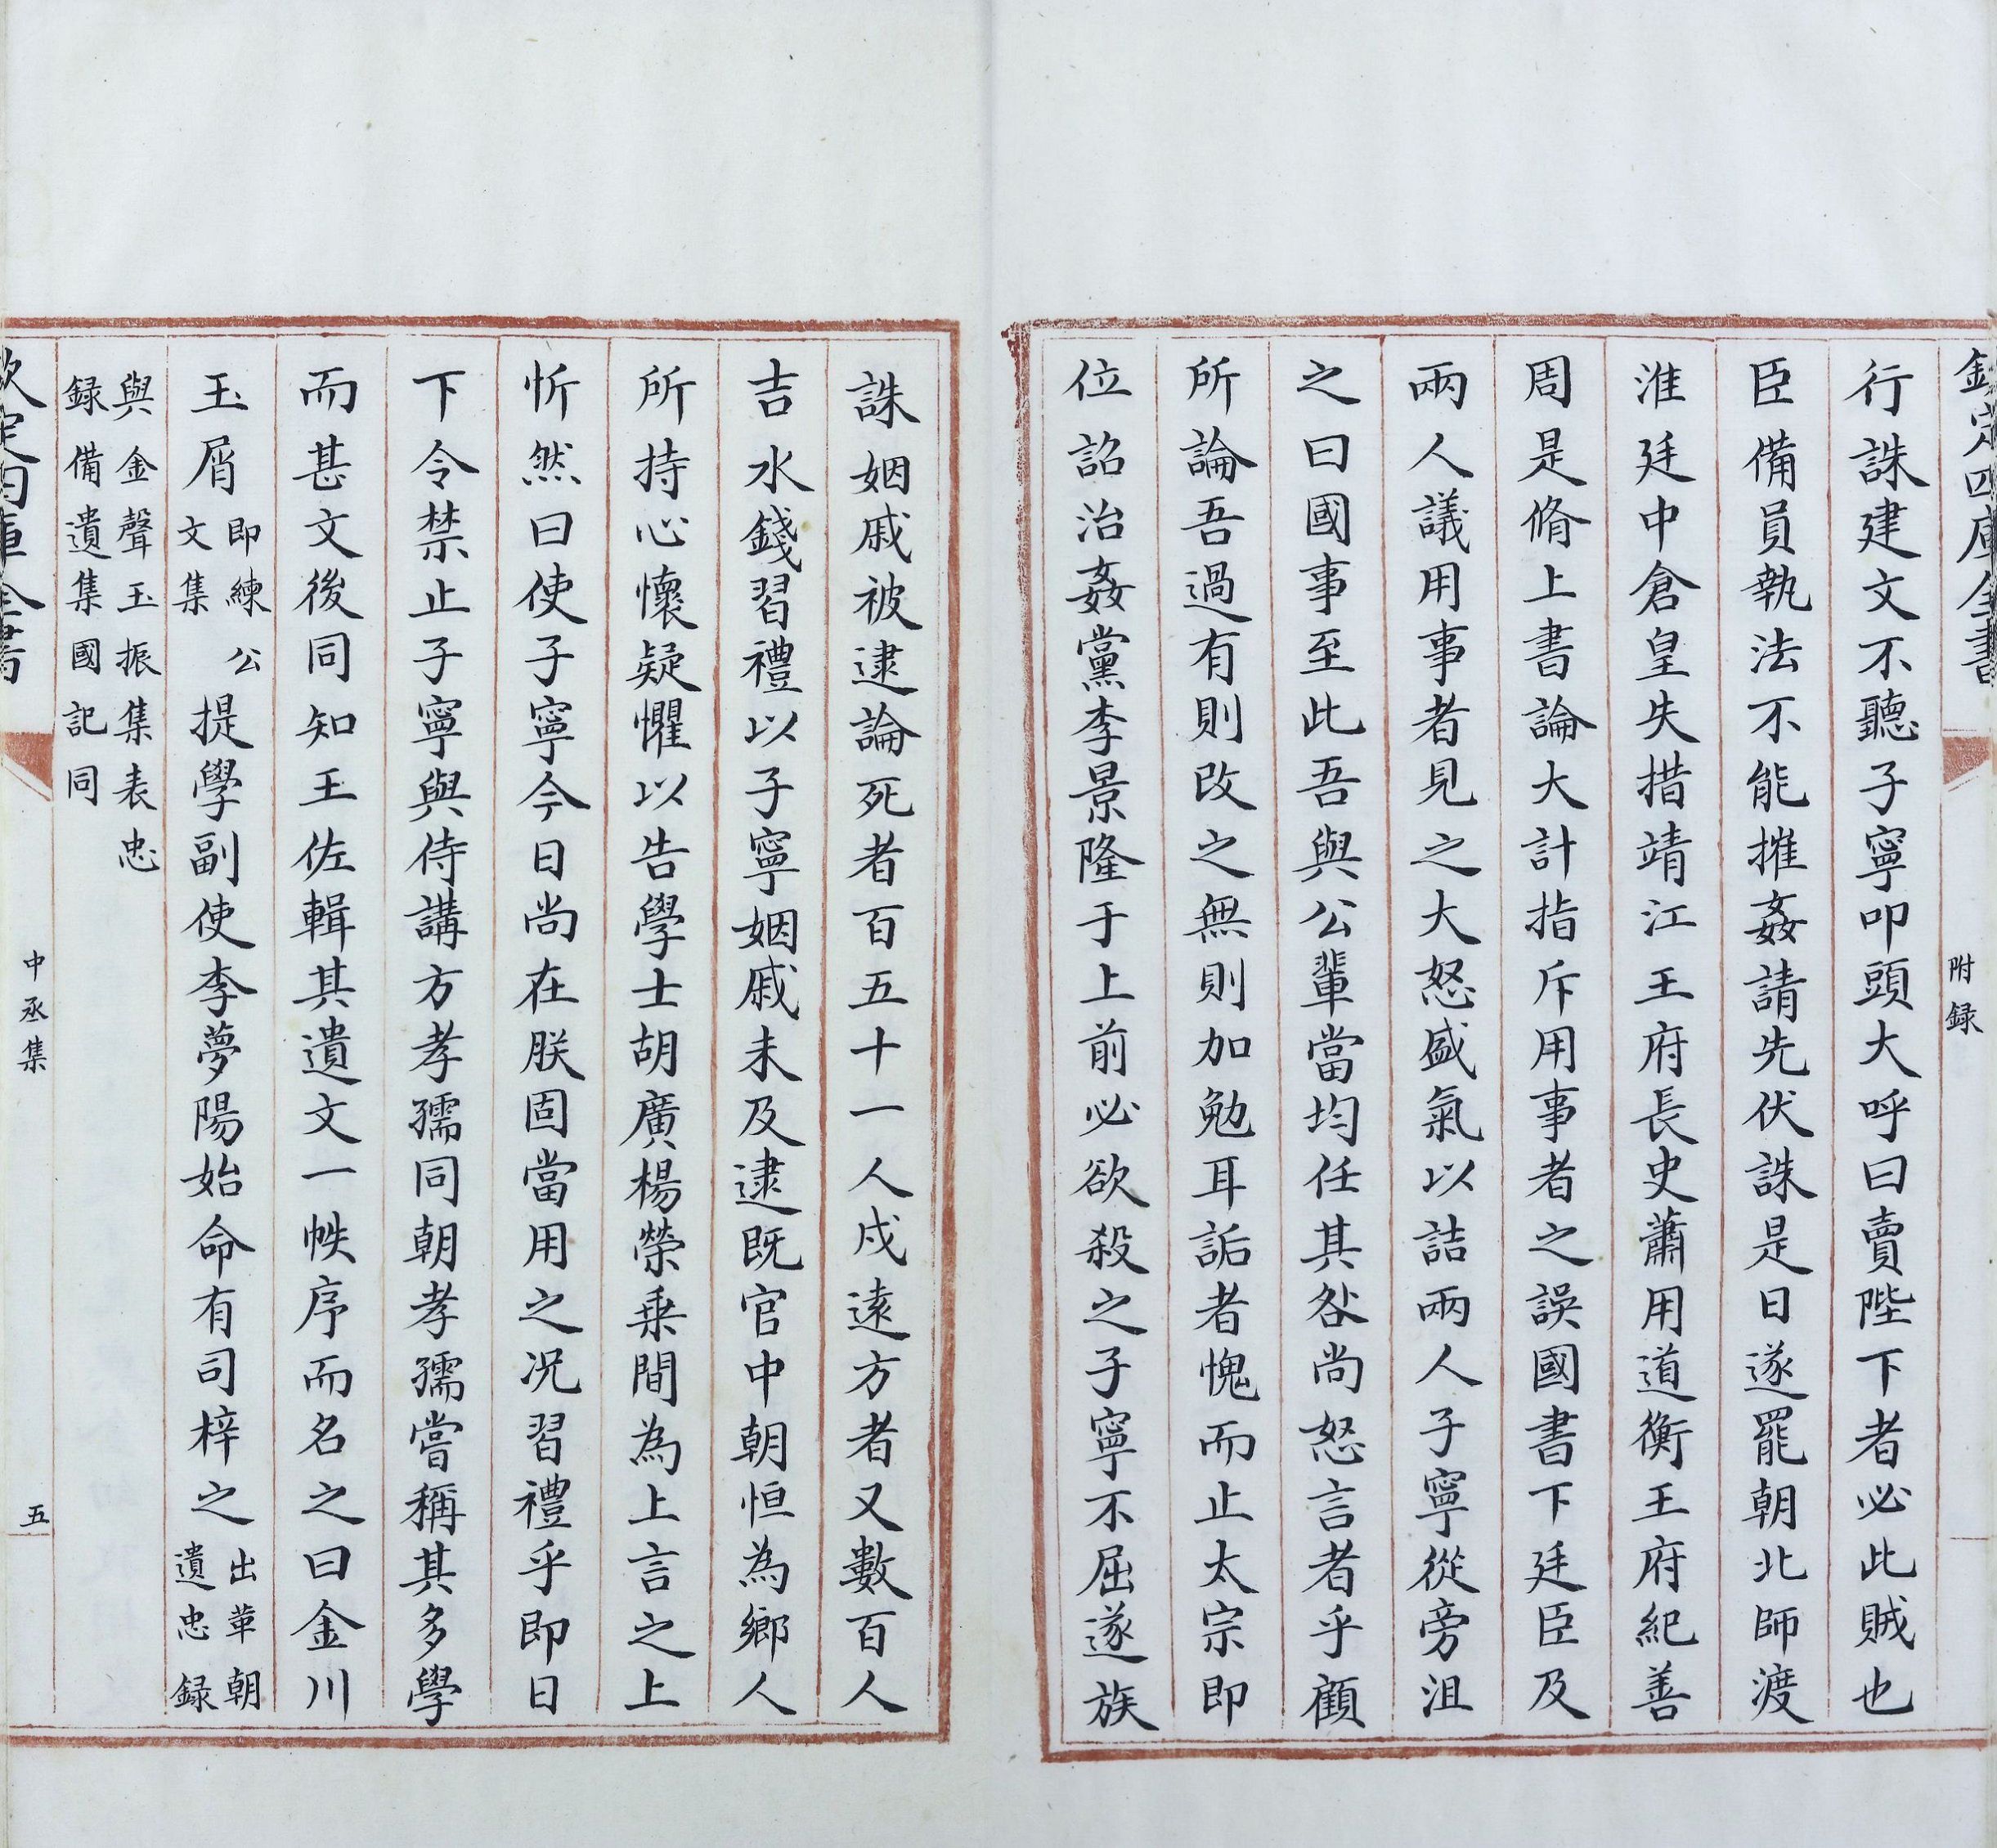 欽定四庫全書
附録
行誅建文不聽子寧叩頭大呼曰賣陛下者必此賊也
臣備員執法不能摧姦請先伏誅是日遂罷朝北師渡
淮廷中倉皇失措靖江王府長史蕭用道衡王府紀善
周是脩上書論大計指斥用事者之誤國書下廷臣及
兩人議用事者見之大怒盛氣以詰兩人子寧從旁沮
之曰國事至此吾與公輩當均任其咎尚怒言者乎顧
所論吾過有則改之無則加勉耳詬者愧而止太宗即
位詔治姦黨李景隆于上前必欲殺之子寧不屈遂族
誅姻戚被逮論死者百五十一人戍遠方者又數百人
吉水錢習禮以子寧姻戚未及逮既官中朝恒為鄉人
所持心懷疑懼以告學士胡廣楊榮乗間為上言之上
忻然曰使子寧今日尚在朕固當用之况習禮乎即日
下令禁止子寧與侍講方孝孺同朝孝孺嘗稱其多學
而甚文後同知王佐輯其遺文一帙序而名之曰金川
玉屑即練公文集提學副使李夢陽始命有司梓之出革朝遺忠録
與金聲玉振集表忠
録備遺集國記同
欽定四庫全書
中丞集
五